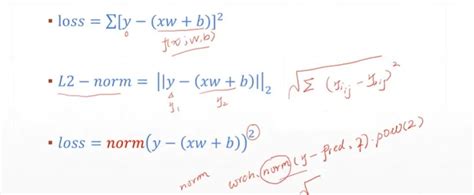 ▪ loss = Σ[y − (xw + b)]²
0 f(x; w, b)
▪ L2 − norm = ||y − (xw + b)||₂ √Σ (y₁ᵢⱼ − y₂ᵢⱼ)²
y₁ y₂
▪ loss = norm(y − (xw + b))²
norm torch.norm(y − pred, 2).pow(2)